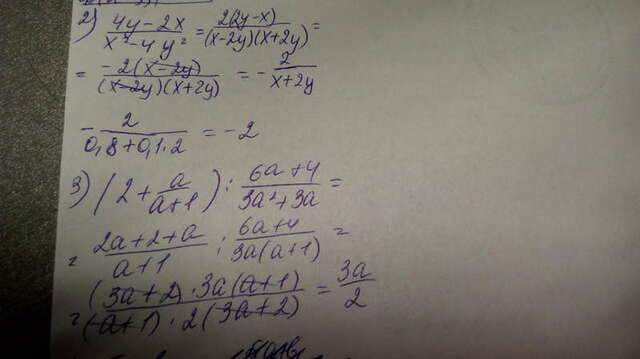 2) (4y-2x)/(x²-4y²) = 2(2y-x)/((x-2y)(x+2y)) =
= -2(x-2y)/((x-2y)(x+2y)) = -2/(x+2y)
-2/(0,8+0,1·2) = -2
3) (2 + a/(a+1)) : (6a+4)/(3a²+3a) =
= (2a+2+a)/(a+1) : (6a+4)/(3a(a+1)) =
= (3a+2)·3a(a+1)/((a+1)·2(3a+2)) = 3a/2